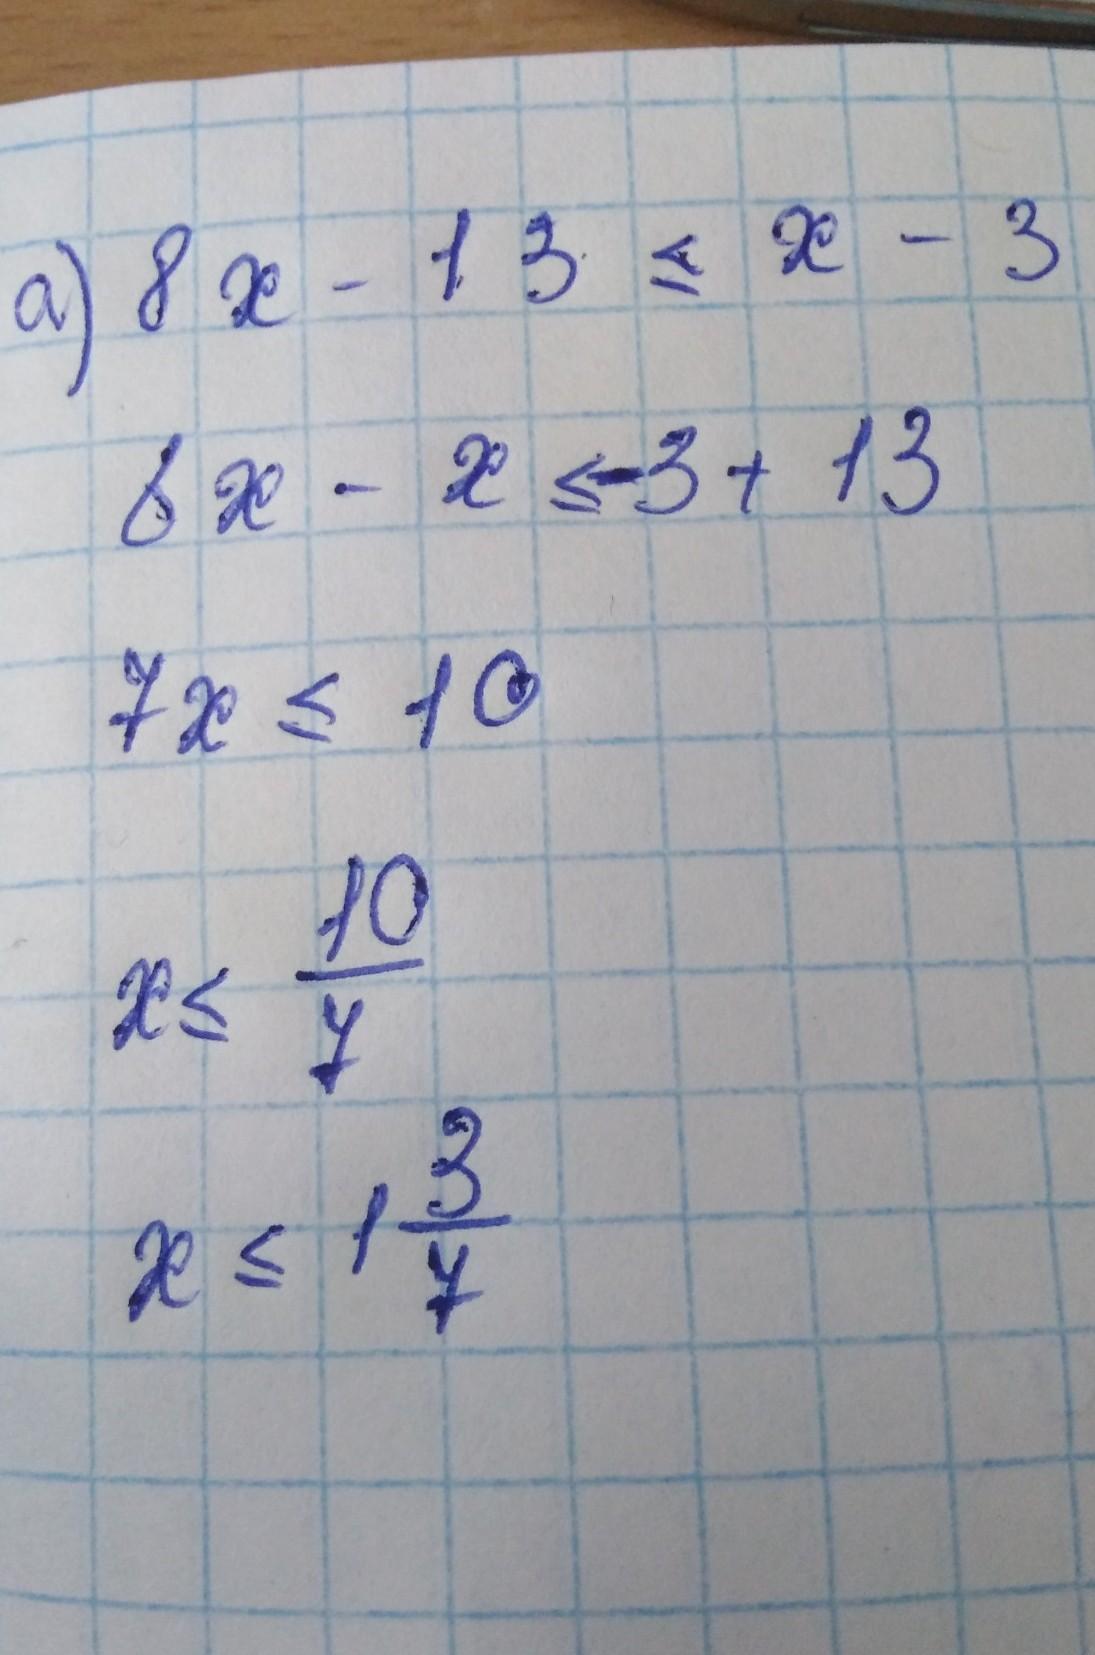 а) 8x - 13 ≤ x - 3
8x - x ≤ -3 + 13
7x ≤ 10
x ≤ 10/7
x ≤ 1 3/7